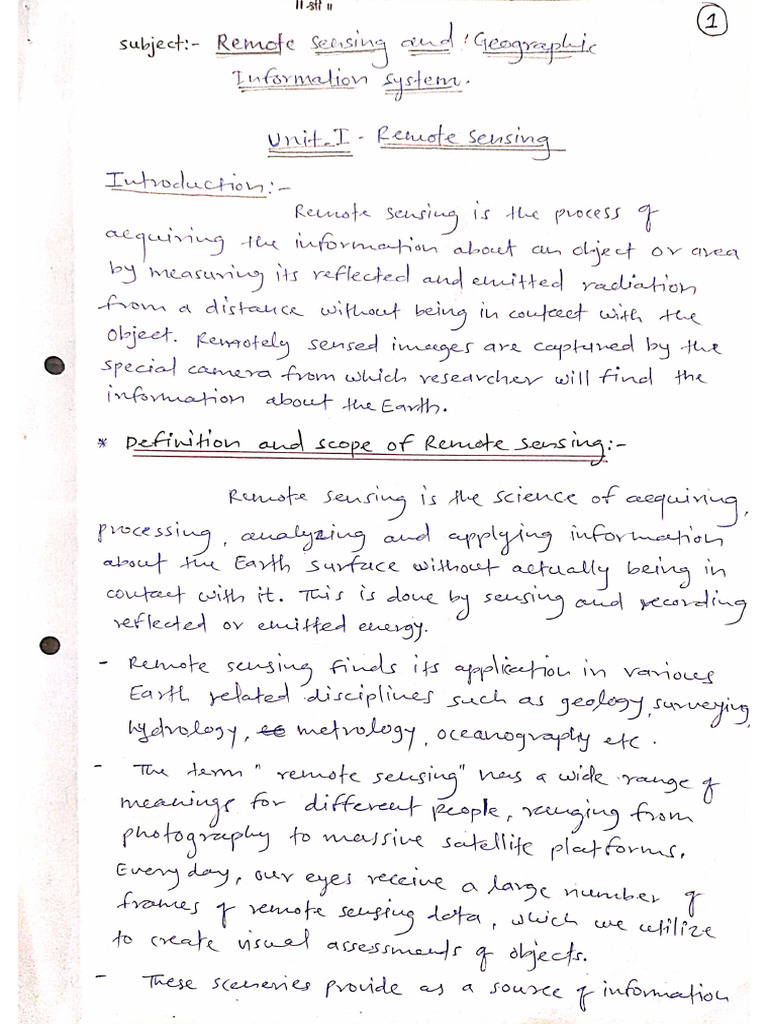 ॥ श्री ॥
1
subject:- Remote sensing and Geographic
Information system.
Unit-I - Remote sensing
Introduction:-
Remote sensing is the process of
aequiring the information about an object or area
by measuring its reflected and emitted radiation
from a distance without being in contact with the
object. Remotely sensed images are captured by the
special camera from which researcher will find the
information about the Earth.
* Definition and scope of Remote sensing:-
Remote sensing is the science of aequiring,
processing, analyzing and applying information
about the Earth surface without actually being in
contact with it. This is done by sensing and recording
reflected or emitted energy.
- Remote sensing finds its application in various
Earth related disciplines such as geology, surveying,
hydrology, metrology, oceanography etc.
- The term "remote sensing" has a wide range of
meanings for different people, ranging from
photography to massive satellite platforms.
Every day, our eyes receive a large number of
frames of remote sensing data, which we utilize
to create visual assessments of objects.
- These sceneries provide as a source of information